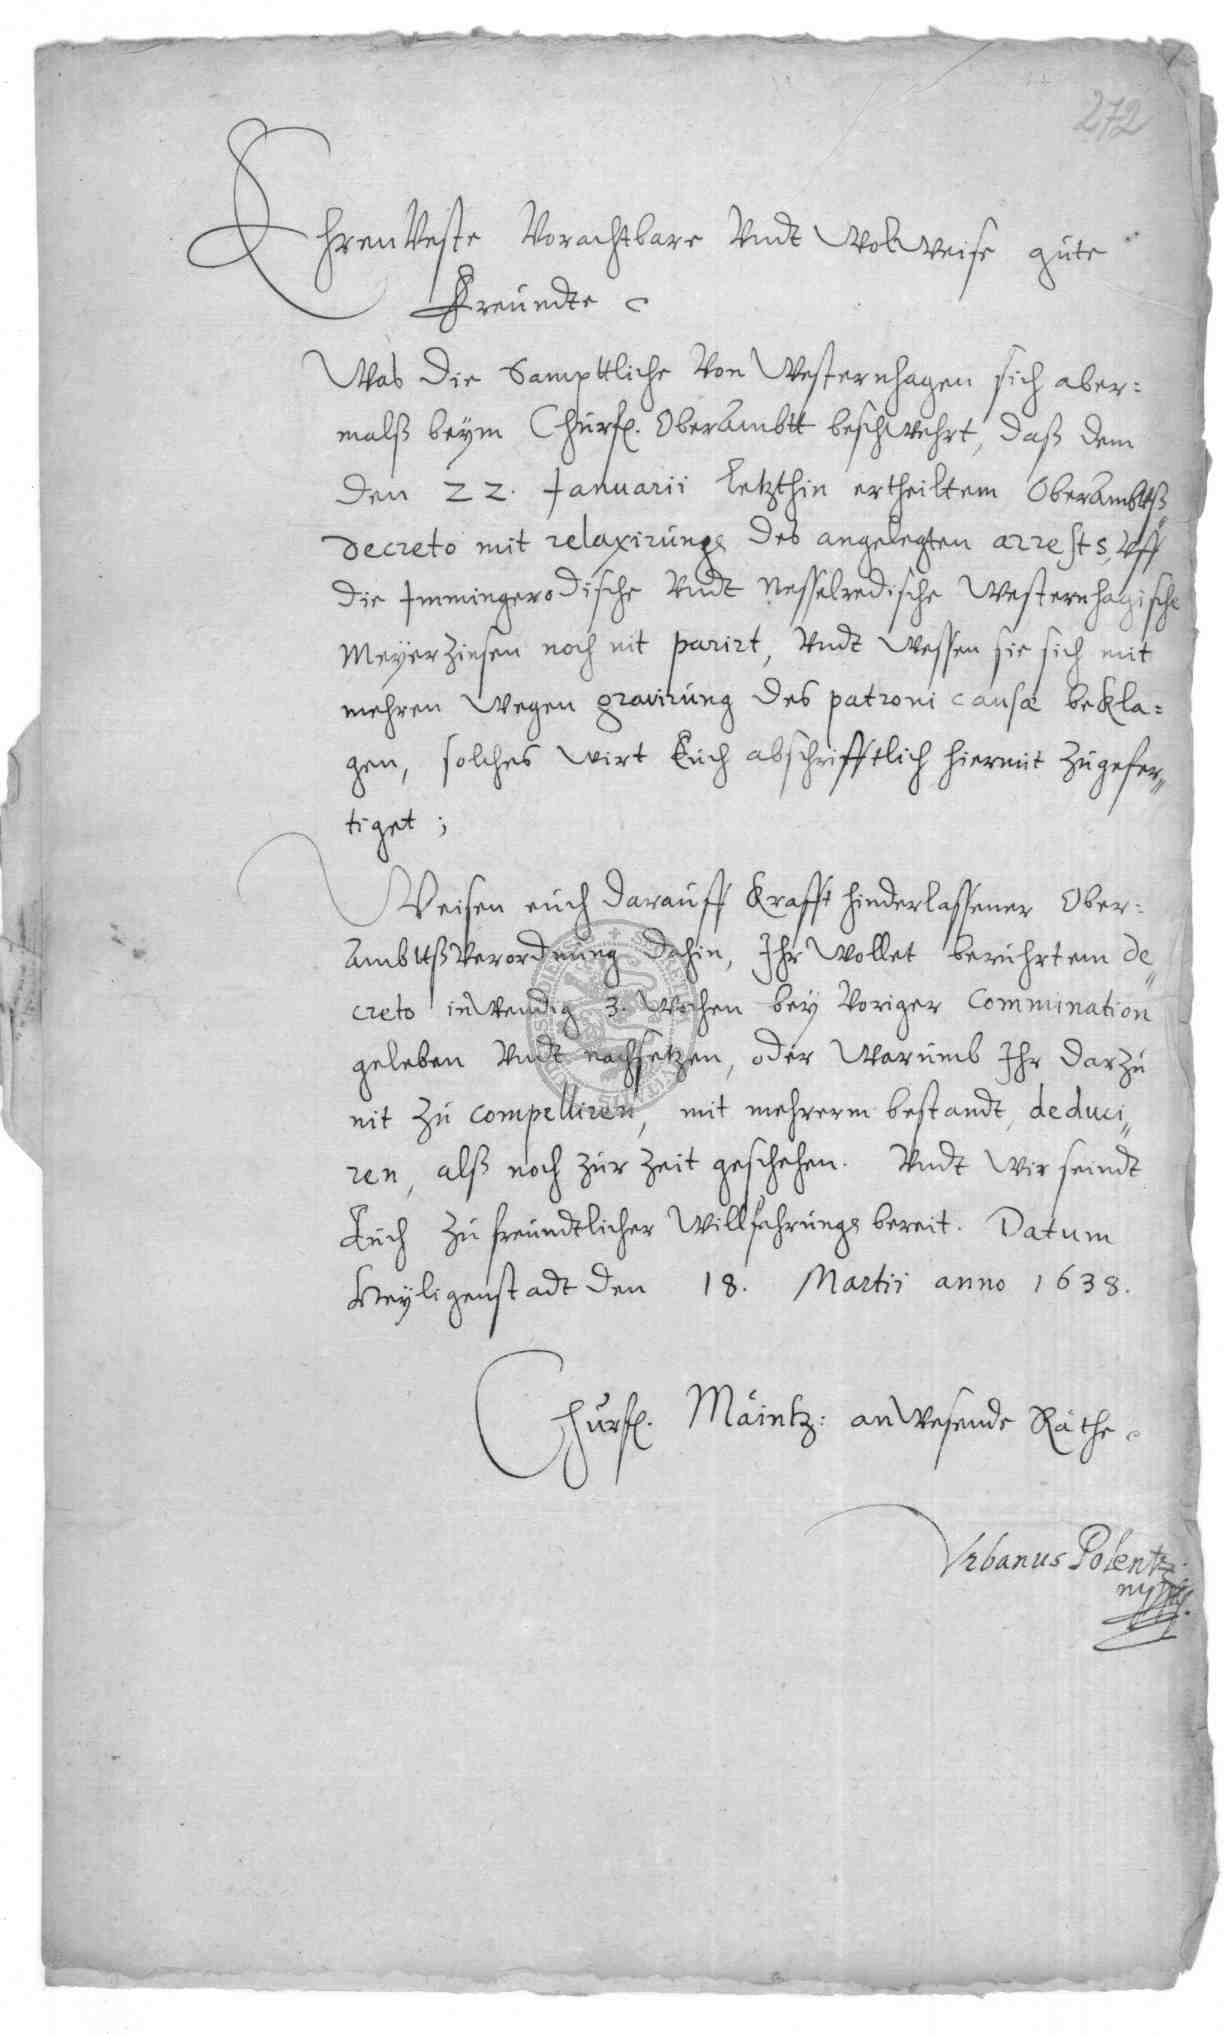 272
EhrenVeste Vorachtbare Vndt WolWeise gúte
Freúndte
Was die Sampttliche Von Westernhagen sich aber=
malß beÿm Chúrfl. OberAmbtt beschWehrt, daß dem
den 22. Januarii letzthin ertheiltem OberAmbttß
decreto mit relaxirúng des angelegten arrests, Vff
die Immingerodische Vndt Nesselredische Westernhagische
MeÿerZinsen noch nit parirt, Vndt Wessen sie sich mit
mehren Wegen gravirúng des patroni causæ bekla=
gen, solches Wirt Eúch abschrifftlich hiermit Zúgefer„
tiget;
Weisen eúch daraúff Krafft hinderlassener Ober=
AmbttßVerordnúng dahin, Ihr Wollet berúhrtem de„
creto inWendig 3. Wochen beÿ Voriger Commination
geleben Vndt nachsetzen, oder Warúmb Ihr darZú
nit Zú compelliren, mit mehrerm bestandt, deduci„
ren, alß noch Zúr Zeit geschehen. Vndt Wir seindt
Eúch Zú freúndtlicher Willfahrúng bereit. Datum
Heÿligenstadt den 18. Martii anno 1638.
Chúrfl. Maintz: anWesende Räthe
Vrbanus Polentz
mppria.